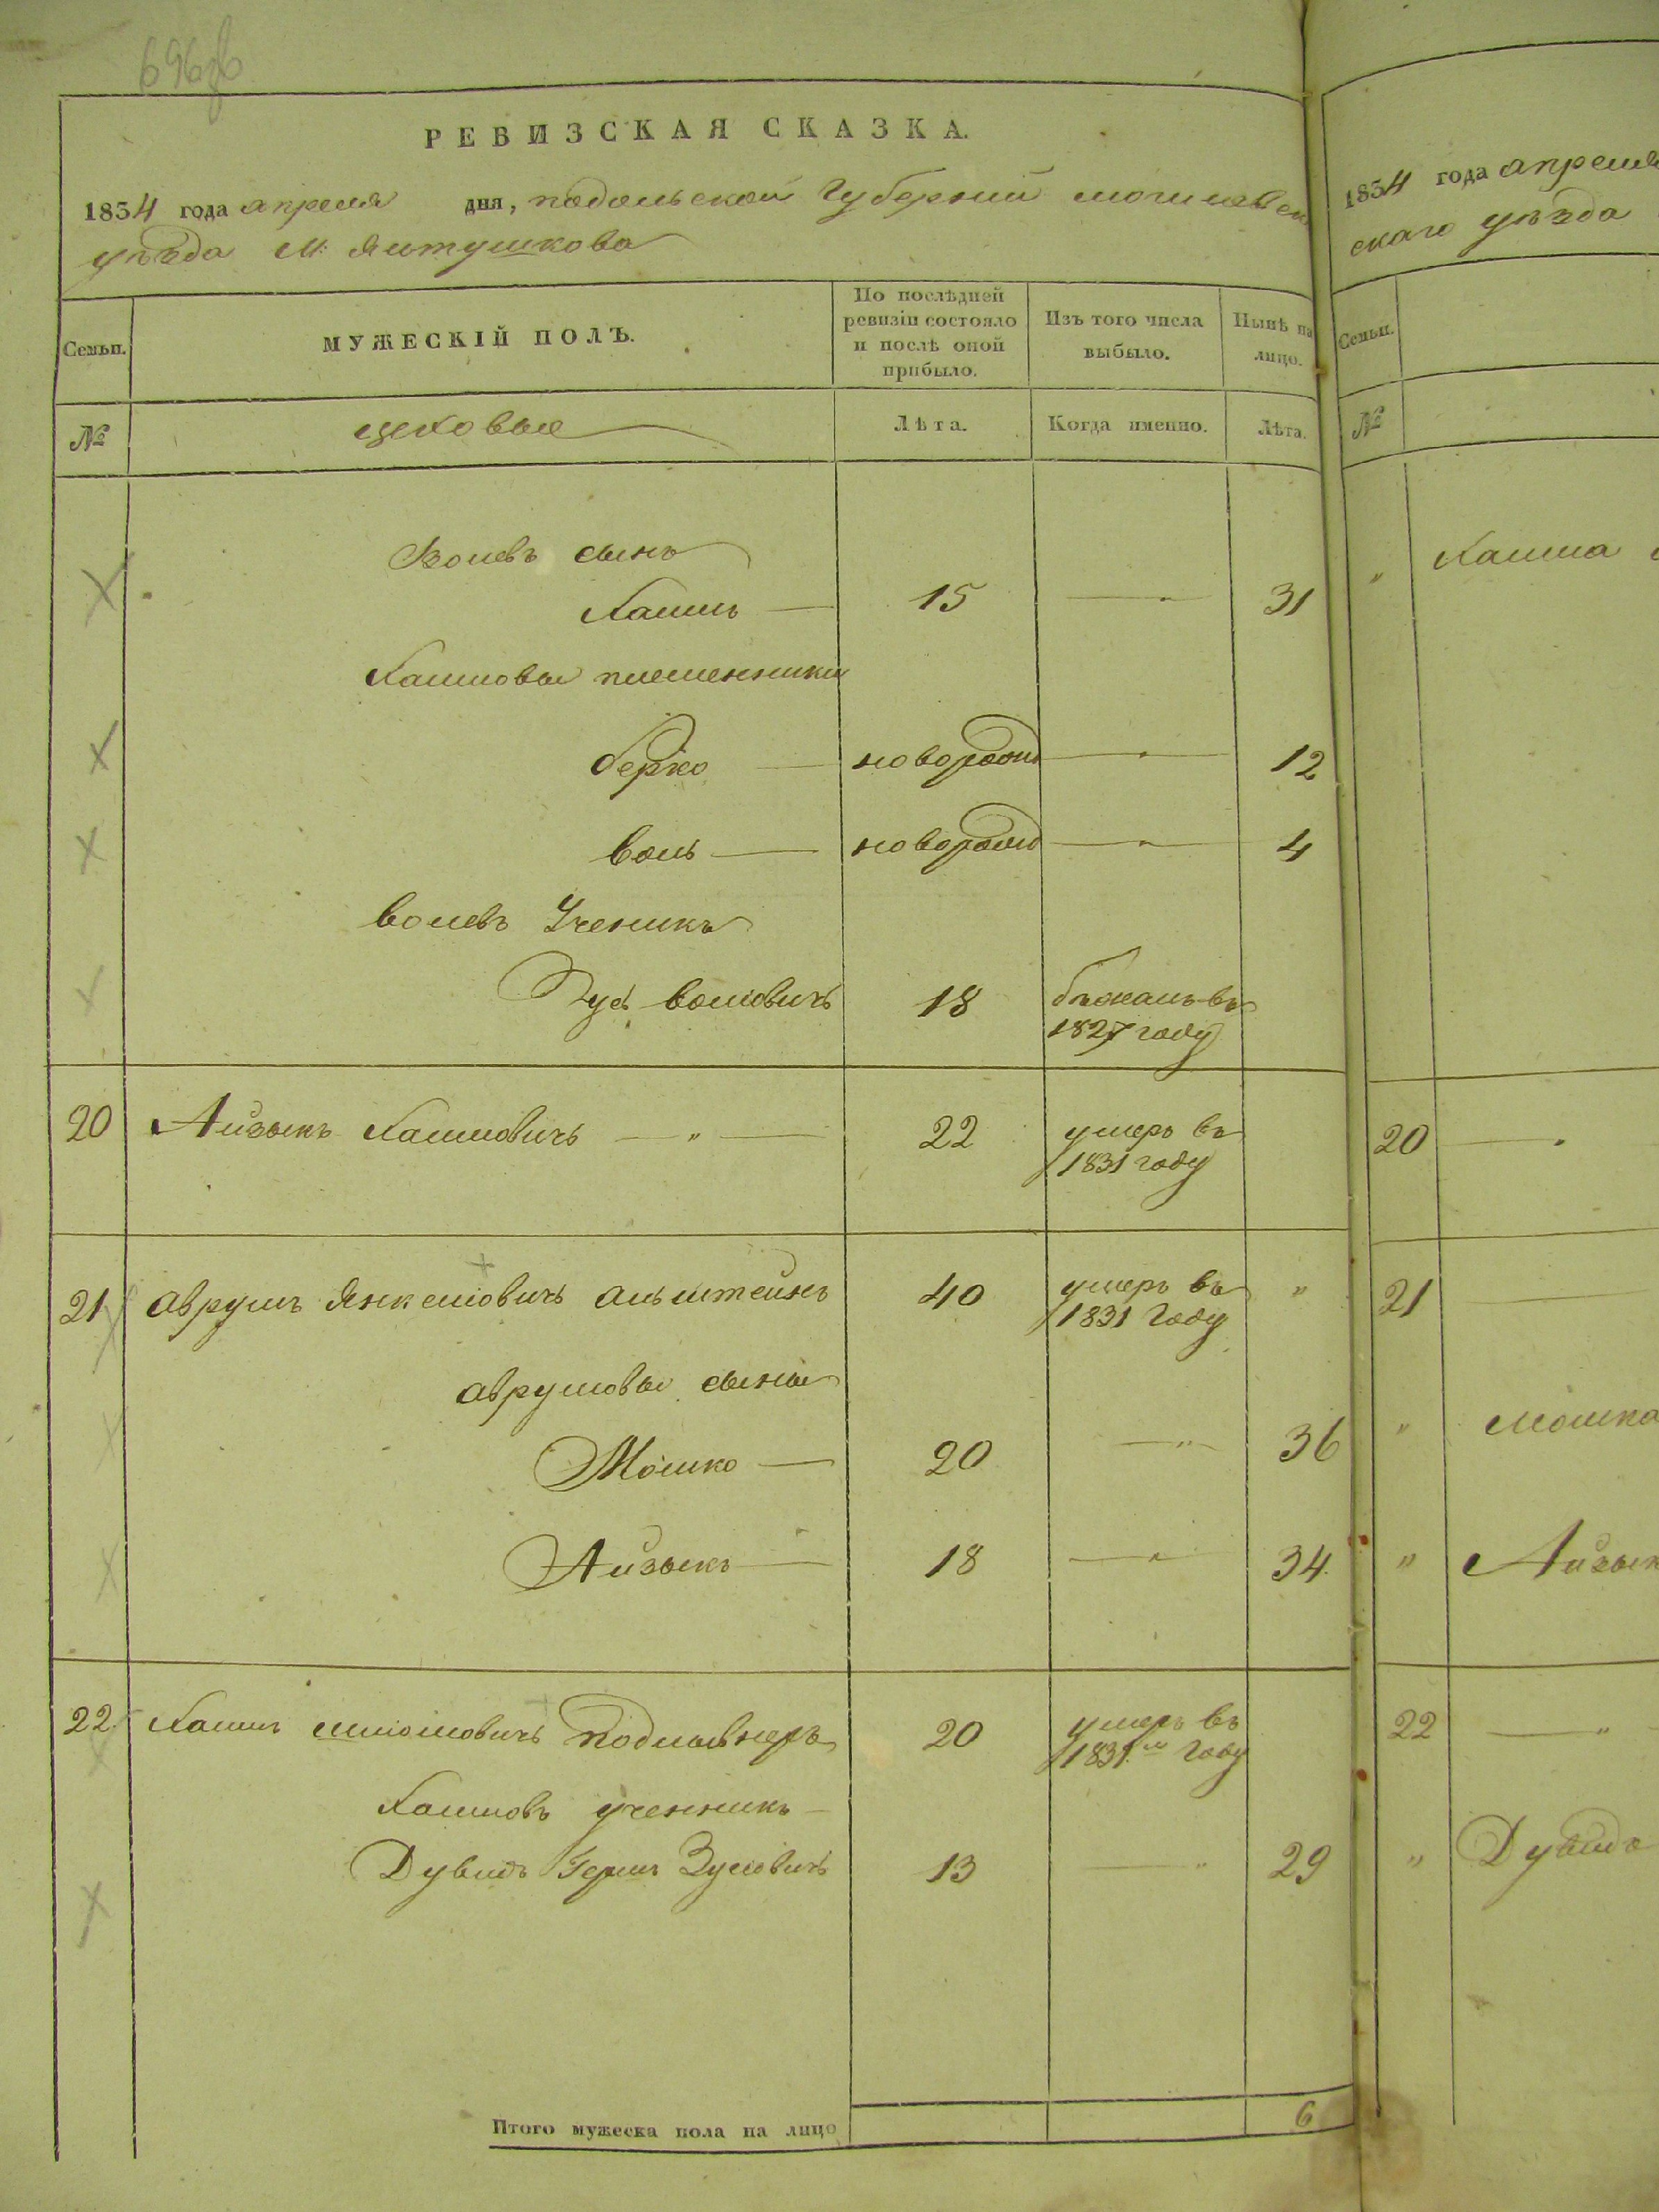 696об
РЕВИЗСКАЯ СКАЗКА.
1834 года апреля дня, подольской Губернии могилевск
уѣзда М: Ялтушкова
Семьи.
МУЖЕСКІЙ ПОЛЪ.
По послѣдней ревизіи состояло и послѣ оной прибыло.
Изъ того числа выбыло.
Нынѣ на лицо.
№
цеховые
Лѣта.
Когда именно.
Лѣта.
Волевъ сынъ
Хаимъ — 15 — 31
Хаимовы племенники
берко — новорожд — 12
воль — новорожд — 4
волевъ Ученикъ
Зусь вольовичъ 18 бѣжалъ въ
1827 году
20 Айзыкъ Хаимовичъ — " — 22 умеръ въ
1831 году
21 аврумъ Янкелiовичъ альштейнъ 40 умеръ въ "
1831 Году
аврумовы сыны
Мошко — 20 — " — 36
Айзыкъ — 18 — " — 34
22 Хаимъ шліомовичъ 20 умеръ въ
1831 Году
Хаимовъ ученникъ
Дувидъ Гершъ Зусіовичъ 13 — " 29
Итого мужеска пола на лицо 6
1834 года апреля
скаго уѣзда
Семьи.
№
" Хаима
20 — "
21 —
" Мошка
" Айзык
22 — "
" Дувида